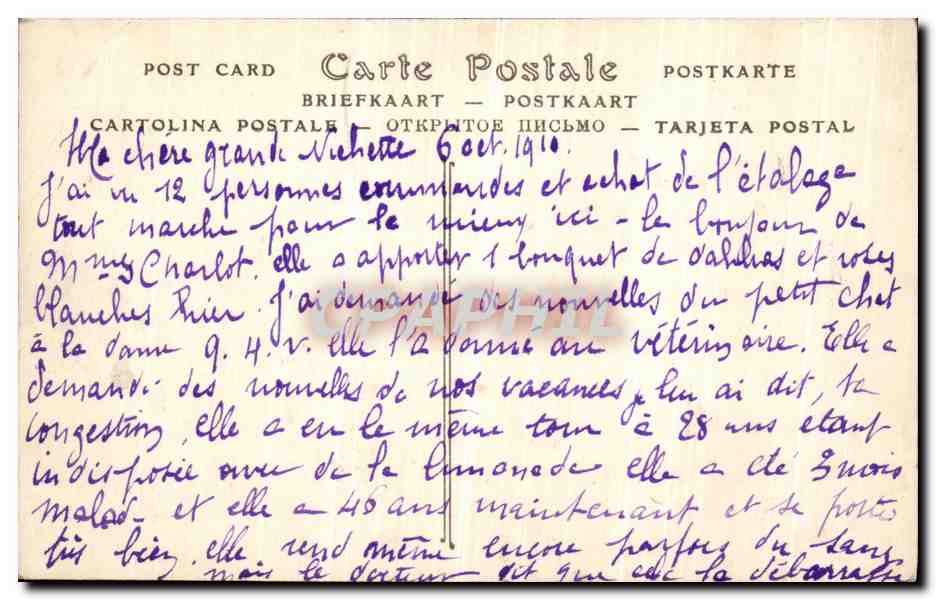 POST CARD Carte Postale POSTKARTE
BRIEFKAART — POSTKAART
CARTOLINA POSTALE — ОТКРЫТОЕ ПИСЬМО — TARJETA POSTAL
Ma chère grande Nichette 6 oct. 1910.
J'ai vu 12 personnes commandes et achat de l'étalage
tout marche pour le mieux ici - le bonjour de
Mmes Charlot. elle a apporter 1 bouquet de dahlias et roses
blanches hier. J'ai demandé des nouvelles du petit chat
à la dame q. t. v. elle l'a donné au vétérinaire. Elle a
demandé des nouvelles de nos vacances, je lui ai dit, ta
congestion, elle a eu le même tour à 28 ans étant
indisposée avec de la limonade elle a été 3 mois
malade et elle a 46 ans maintenant et se porte
très bien, elle rend même encore parfois du sang
mais le docteur dit que cela la débarrasse
CPAPHIL